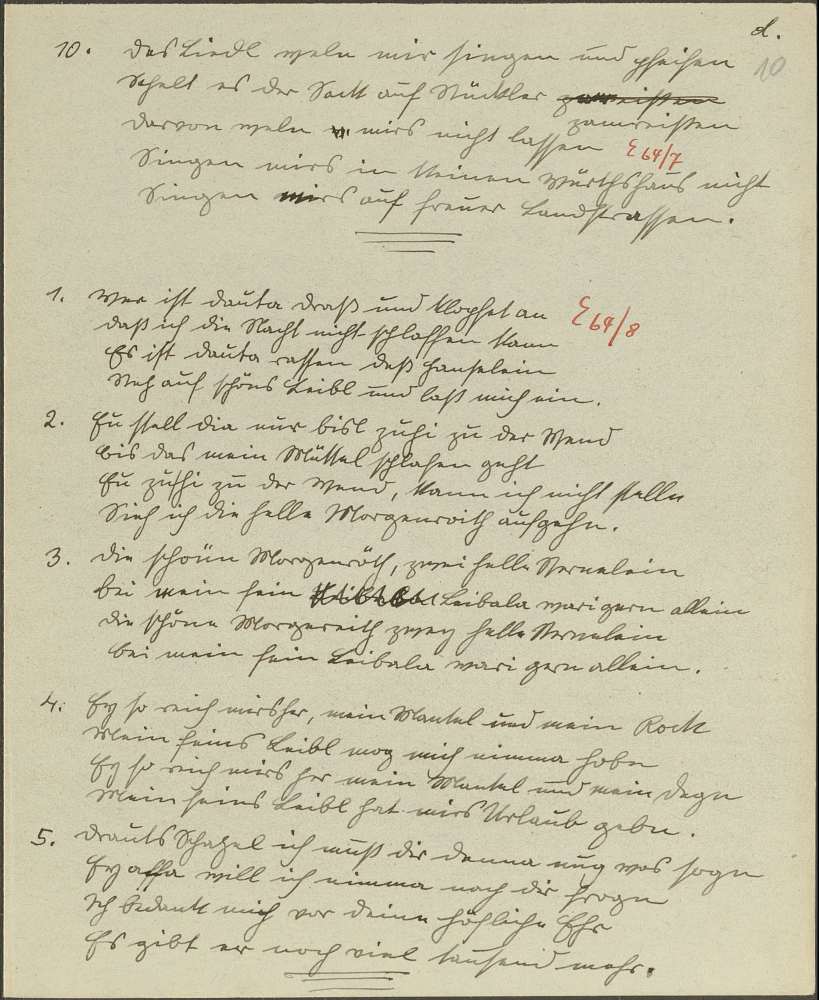 d.
10
10. Das Liedl weln mir singen und pfeifen
Schelt es der Sackl auf Stückler
zamreisten
Darvon weln mirs nicht lassen
E 64/7
Singen mirs in keinen Würthshaus nicht
Singen mirs auf freuer Landstrassen.
1. Wer ist dauta drass und klopfet an
E 64/8
daß ich die Nacht nicht schlaffen kann
Es ist dauta rassen deß Hanselein
Steh auf schöns Leibl und laß mich ein.
2. Eu stell dia nur bisl zuhi zu der Wend
bis das mein Müttal schlafen geht
Eu zuhi zu der Wend, kann ich nicht stelln
Sieh ich die helle Morgenroith aufgehn.
3. die schönn Morgenröth, zwei helle Sternelein
bei mein fein Leibala wari gern allein
die schöne Morgereith zwey helle Sternelein
bei mein fein Leibala wari gern allein.
4. Ey so reich mirs her, mein Mantel und mein Rock
Mein feins Leibl mog mich nimma hoben
Ey so reich mirs her mein Mantel und mein Degn
Mein feins Leibl hat mirs Urlaub gebn.
5. Drauts Schazel ich muß dir denna nug was sogn
Ey affa will ich nimma nach dir frogn
Ich bedankt mich vor deine höfliche Ehr
Es gibt er noch viel tausend mehr.